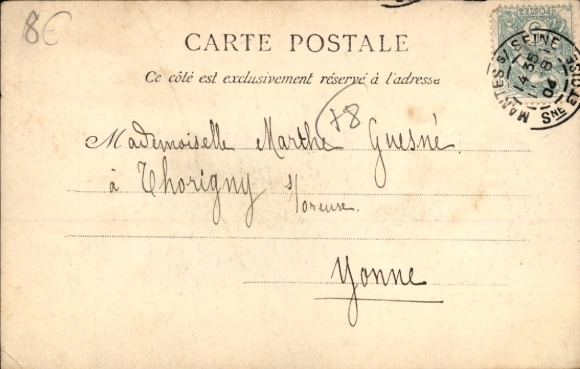 8€
CARTE POSTALE
Ce côté est exclusivement réservé à l'adresse
78
Mademoiselle Marthe Guesné.
à Thorigny s/oreuse.
Yonne
POSTES
MANTES S/ SEINE